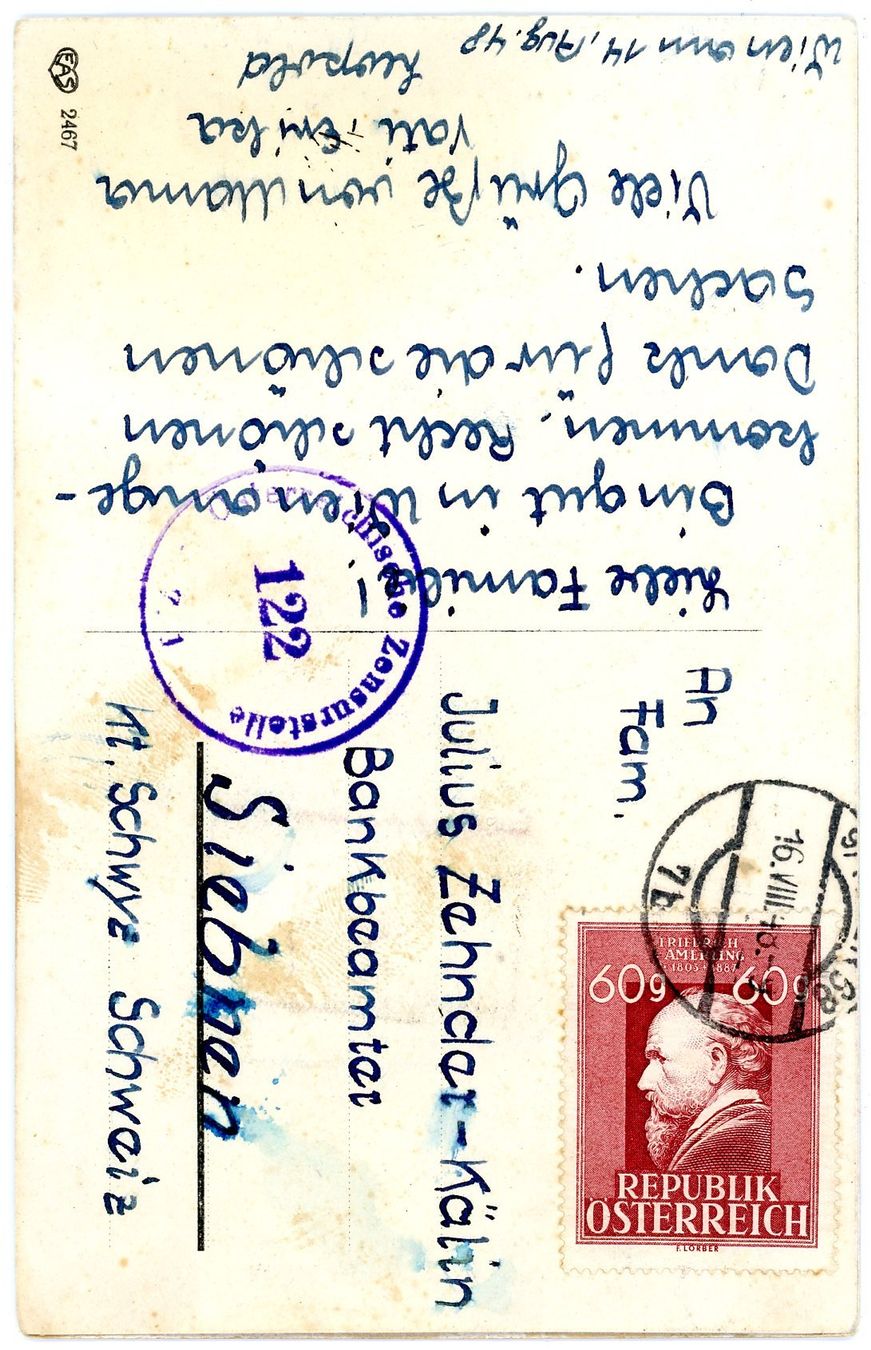 Wien am 14. Aug. 48
Liebe Familie!
Bin gut in Wien ange-
kommen, Recht schönen
Dank für die schönen
Sachen.
Viele Grüße von Mama
Vati, Erika
Leopold
EAS 2467
An
Fam.
Julius Zehnder-Kälin
Bankbeamter
Siebnen
Kt. Schwyz Schweiz
Österreichische Zensurstelle
122
16.VIII.48
7b
FRIEDRICH
AMERLING
1803 1887
60g 60g
REPUBLIK
ÖSTERREICH
F. LORBER